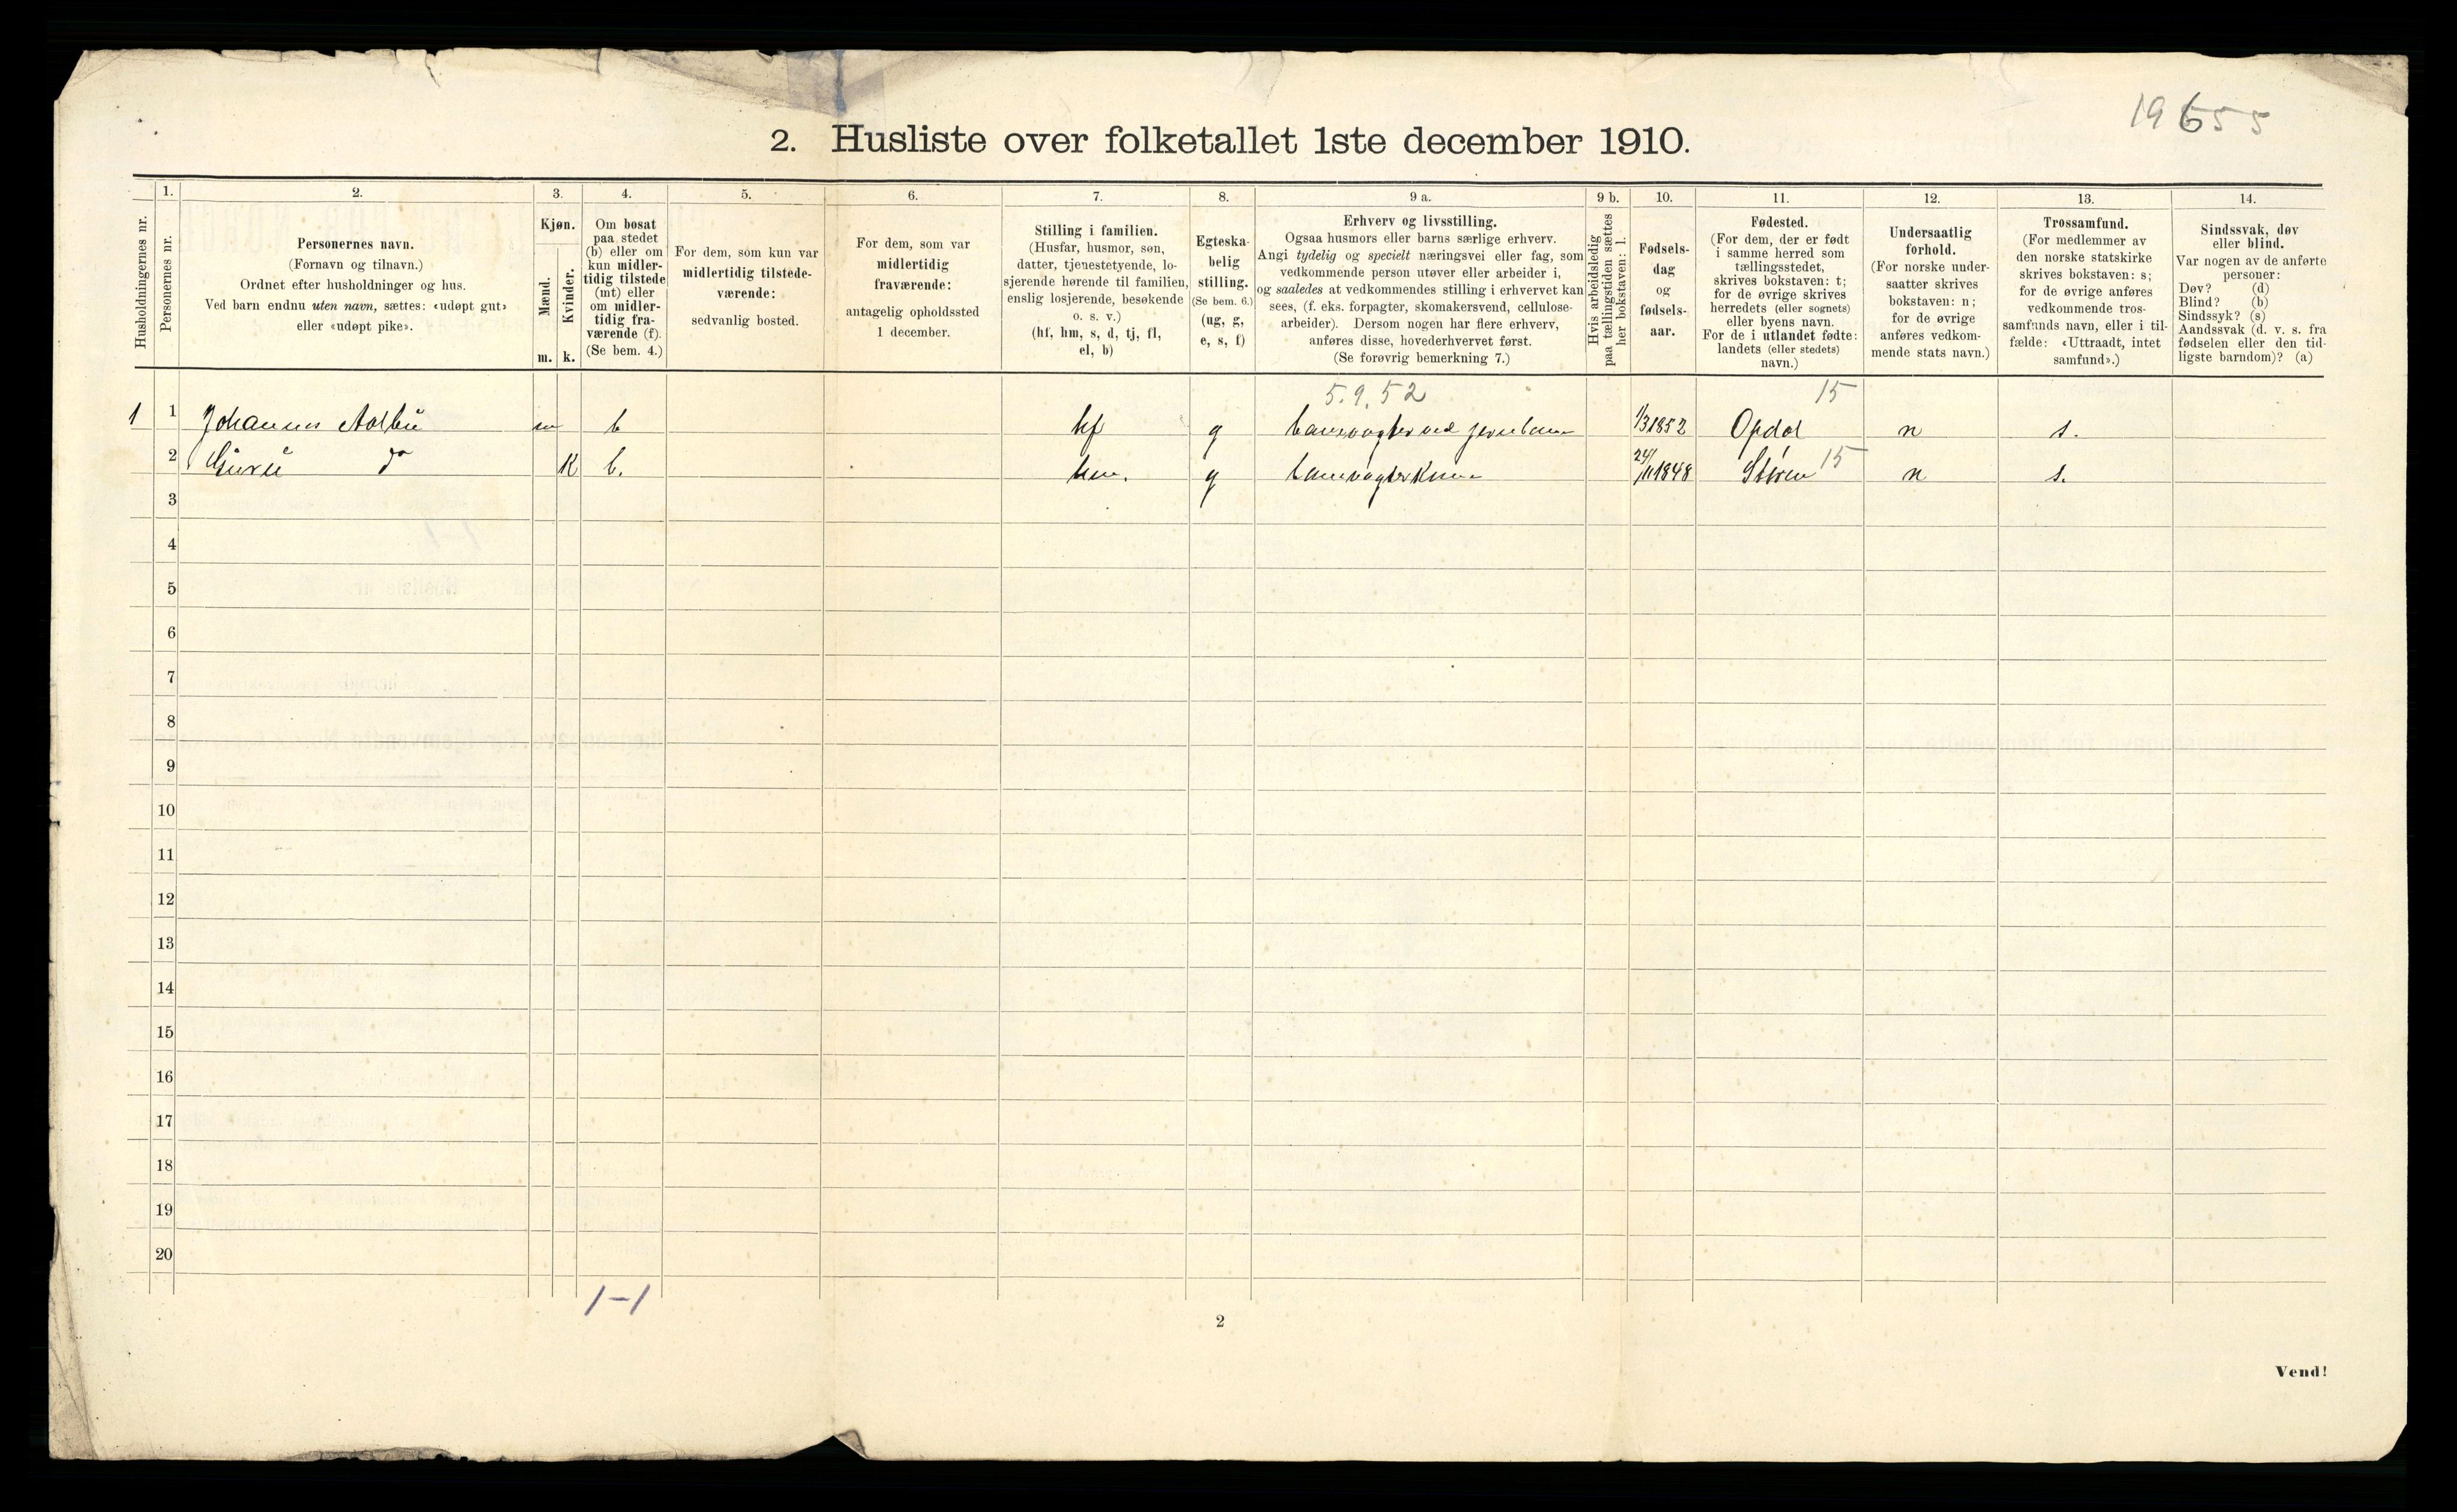 19655
2. Husliste over folketallet 1ste december 1910.
Husholdningernes nr.
1.
Personernes nr.
2.
Personernes navn.
(Fornavn og tilnavn.)
Ordnet efter husholdninger og hus.
Ved barn endnu uten navn, sættes: «udøpt gut»
eller «udøpt pike».
3.
Kjøn.
Mænd.
m.
Kvinder.
k.
4.
Om bosat
paa stedet
(b) eller om
kun midler-
tidig tilstede
(mt) eller
om midler-
tidig fra-
værende (f).
(Se bem. 4.)
5.
For dem, som kun var
midlertidig tilstede-
værende:
sedvanlig bosted.
6.
For dem, som var
midlertidig
fraværende:
antagelig opholdssted
1 december.
7.
Stilling i familien.
(Husfar, husmor, søn,
datter, tjenestetyende, lo-
sjerende hørende til familien,
enslig losjerende, besøkende
o. s. v.)
(hf, hm, s, d, tj, fl,
el, b)
8.
Egteska-
belig
stilling.
(Se bem. 6.)
(ug, g,
e, s, f)
9 a.
Erhverv og livsstilling.
Ogsaa husmors eller barns særlige erhverv.
Angi tydelig og specielt næringsvei eller fag, som
vedkommende person utøver eller arbeider i,
og saaledes at vedkommendes stilling i erhvervet kan
sees, (f. eks. forpagter, skomakersvend, cellulose-
arbeider). Dersom nogen har flere erhverv,
anføres disse, hovederhvervet først.
(Se forøvrig bemerkning 7.)
9 b.
Hvis arbeidsledig
paa tællingstiden sættes
her bokstaven: l.
10.
Fødsels-
dag
og
fødsels-
aar.
11.
Fødested.
(For dem, der er født
i samme herred som
tællingsstedet,
skrives bokstaven: t;
for de øvrige skrives
herredets (eller sognets)
eller byens navn.
For de i utlandet fødte:
landets (eller stedets)
navn.)
12.
Undersaatlig
forhold.
(For norske under-
saatter skrives
bokstaven: n;
for de øvrige
anføres vedkom-
mende stats navn.)
13.
Trossamfund.
(For medlemmer av
den norske statskirke
skrives bokstaven: s;
for de øvrige anføres
vedkommende tros-
samfunds navn, eller i til-
fælde: «Uttraadt, intet
samfund».)
14.
Sindssvak, døv
eller blind.
Var nogen av de anførte
personer:
Døv? (d)
Blind? (b)
Sindssyk? (s)
Aandssvak (d. v. s. fra
fødselen eller den tid-
ligste barndom)? (a)
5.9.52 15
1 1 Johannes Aalbu m b hf g banevogter ved jernbane 1/3 1852 Opdal n s.
2 Guru do k b. hm. g banevogterkone 24/11 1848 Støren 15 n s.
3
4
5
6
7
8
9
10
11
12
13
14
15
16
17
18
19
20
1-1
2
Vend!